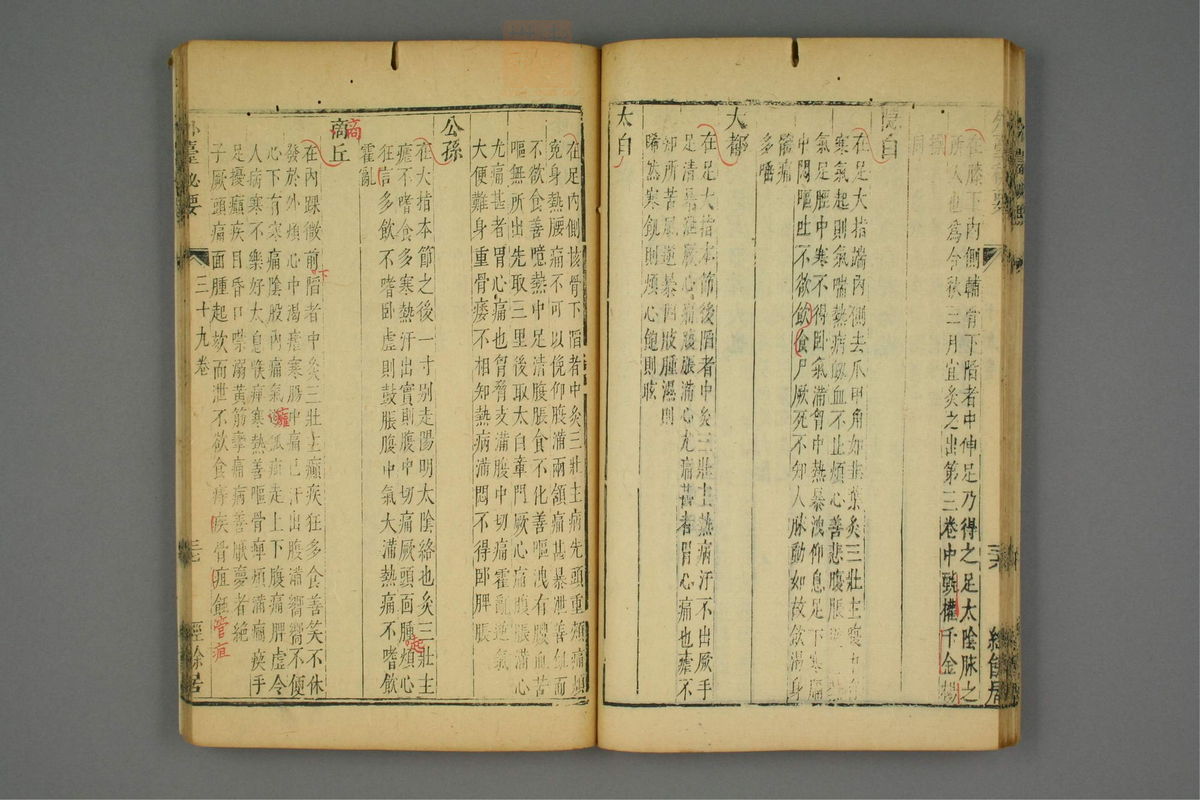 在膝下內側輔骨下陷者中伸足乃得之足太陰脉之
所入也為今秋三月宜灸之出第三卷中甄權千金楊
同
隱白
在足大指端內側去爪甲角如韭葉灸三壯主腹中有
寒氣起則氣喘熱病衂血不止煩心善悲腹脹
氣足脛中寒不得卧氣滿胷中熱暴洩仰息足下寒膈
中悶嘔吐不欲飲食尸厥死不知人脉動如故飲渴身
體痛多唾
大都
在足大指本節後陷者中灸三壯主熱病汗不出厥手
足清暴泄厥心痛腹脹滿心尤痛甚者胃心痛也瘧不
知所苦風逆暴四肢腫濕則
晞然寒飢則煩心飽則眩
太白
在足內側核骨下陷者中灸三壯主病先頭重頰痛煩
寃身熱腰痛不可以俛仰腹滿兩頷痛甚暴泄善飢而
不欲食善噫熱中足清腹脹食不化善嘔洩有膿血苦
嘔無所出先取三里後取太白章門厥心痛腹脹滿心
尤痛甚者胃心痛也胷脅支滿腹中切痛霍亂逆氣
大便難身重骨痿不相知熱病滿悶不得卧脾脹
公孫
在大指本節之後一寸別走陽明太陰絡也灸三壯主
瘧不嗜食多寒熱汗出實則腹中切痛厥頭面腫煩心
狂言多飲不嗜卧虛則鼓脹腹中氣大滿熱痛不嗜飲
霍亂
商丘
在內踝微前陷者中灸三壯主癲疾狂多食善笑不休
發於外煩心中渴瘧寒腸中痛已汗出腹滿嚮嚮不便
心下有寒痛陰股內痛氣逆狐疝走上下腹痛脾虛令
人病寒不樂好太息喉痺寒熱善嘔骨痺煩滿癇瘛手
足擾癲疾目昏口噤溺黃筋攣痛病善厭夢者絕
子厥頭痛面腫起欬而泄不欲食痔疾骨疽蝕
外臺秘要
三十九卷
三七
經餘居